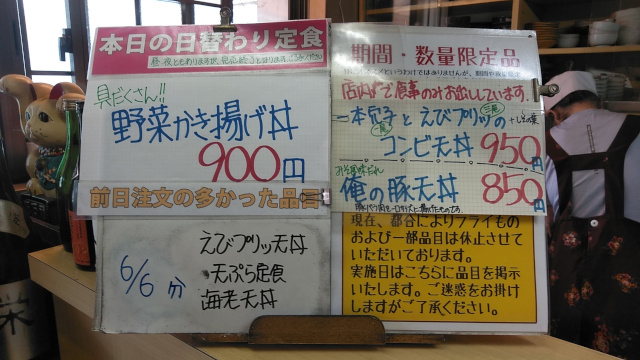 本日の日替わり定食
具だくさん!!
野菜かき揚げ丼
900円
前日注文の多かった品
6/6分
えびプリッ天丼
天ぷら定食
海老天丼
期間・数量限定品
店内で食事のみお出ししています。
一本穴子とえびプリッの
コンビ天丼 950円
俺の豚天丼 850円
現在、都合によりフライもの
および一部品目は休止させて
いただいております。
実施日はこちらに品目を掲示
いたします。ご迷惑をお掛け
しますがご了承ください。